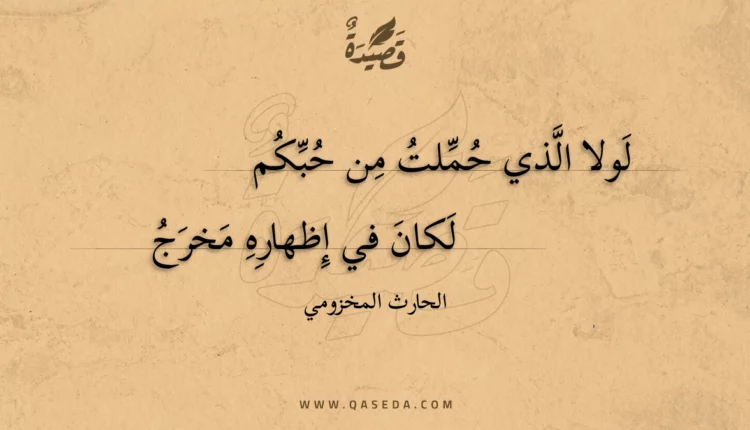 قَصِيْدَةٌ
لَولا الَّذي حُمِّلتُ مِن حُبِّكُم
لَكانَ في إِظهارِهِ مَخرَجُ
الحارث المخزومي
WWW.QASEDA.COM